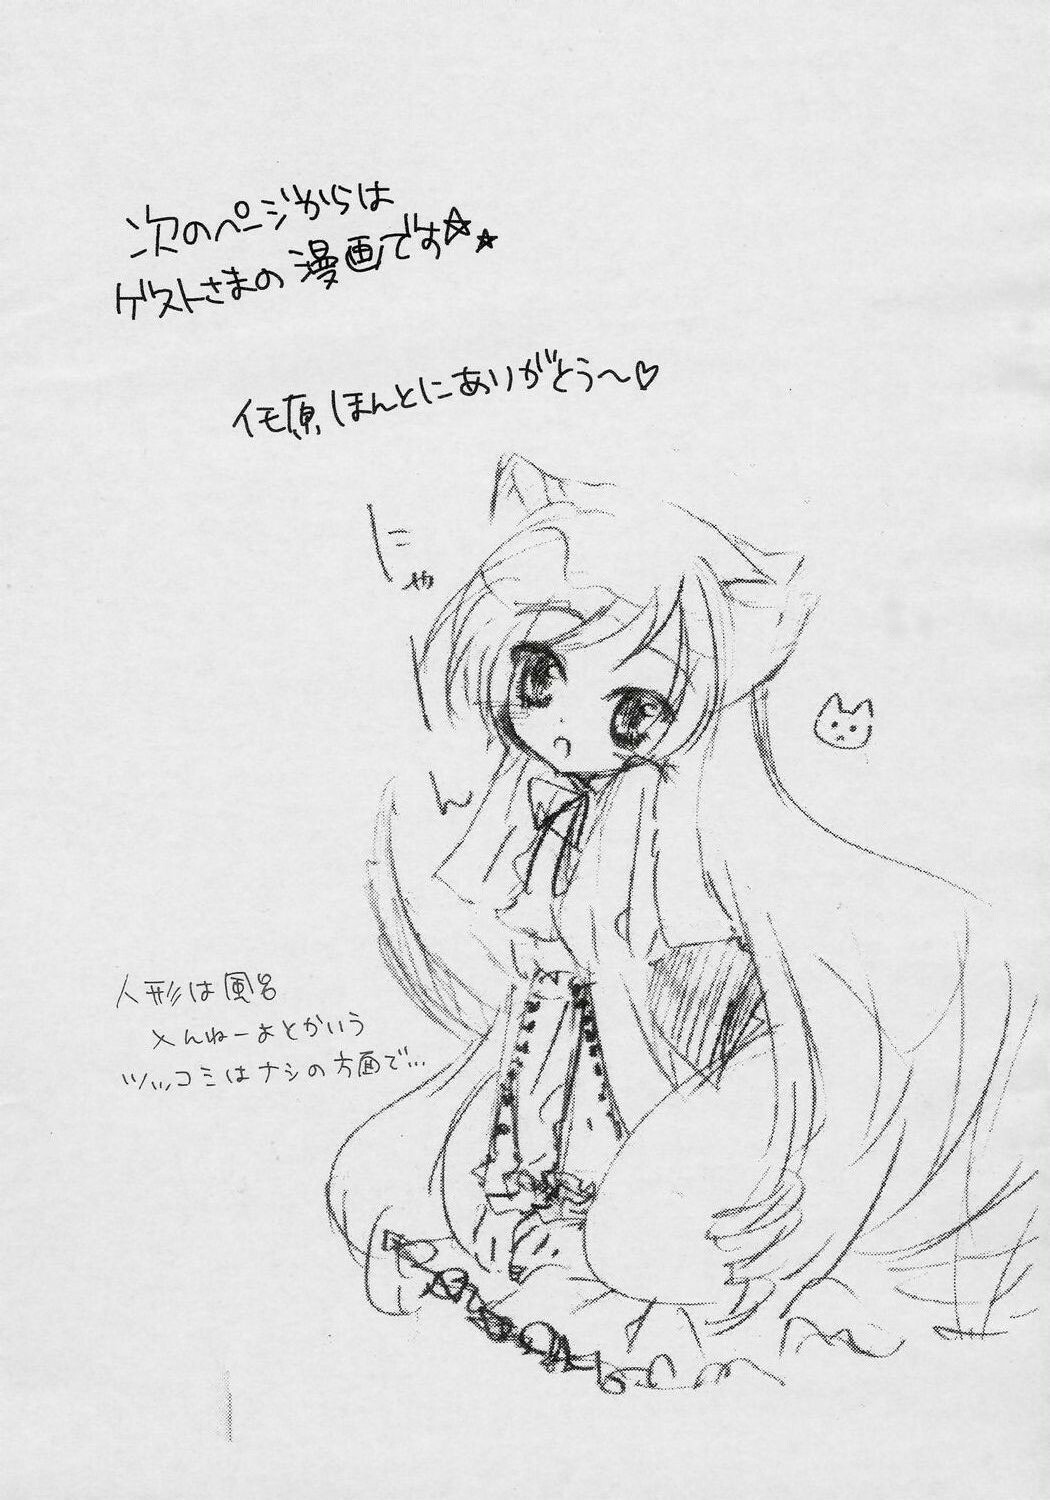 次のページからは
ゲストさまの漫画です☆★
イモ原、ほんとにありがとう〜♡
にゃーん
人形は風呂
入んねーよとかいう
ツッコミはナシの方面で…